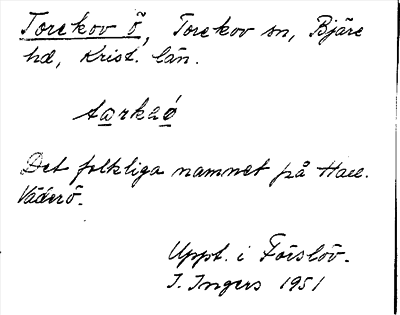 Torekov ö, Torekov sn, Bjäre
hd, Krist. län.
tarkaö
Det folkliga namnet på Hall.
Väderö.
Uppt. i Förslöv.
I. Ingers 1951